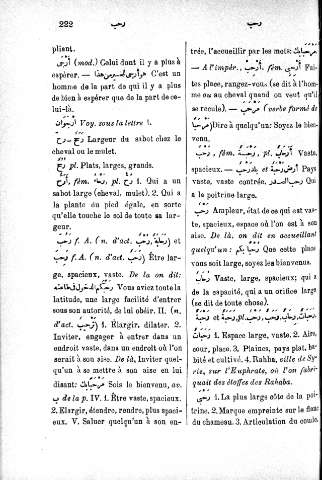 222 رحب رحب
pliant.
أَرْجَى (mod.) Celui dont il y a plus à
espérer. — C'est un
homme de la part de qui il y a plus
de bien à espérer que de la part de ce-
lui-là.
أُرْجُوَان Voy. sous la lettre ا.
رحّ — رَحَح Largeur du sabot chez le
cheval ou le mulet.
رُحّ pl. Plats, larges, grands.
أَرَحّ, fém. رَحَّاء, pl. رُحّ 1. Qui a un
sabot large (cheval, mulet). 2. Qui a
la plante du pied égale, en sorte
qu'elle touche le sol de toute sa lar-
geur.
رَحُبَ f. A. (n. d'act. ) et
رَحِبَ f. A. (n. d'act. ) Être lar-
ge, spacieux, vaste. De là on dit:
Vous aviez toute la
latitude, une large facilité d'entrer
sous son autorité, de lui obéir. II. (n.
d'act. تَرْحِيب) 1. Élargir, dilater. 2.
Inviter, engager à entrer dans un
endroit vaste, dans un endroit où l'on
serait à son aise. De là, Inviter quel-
qu'un à se mettre à son aise en lui
disant: مَرْحَبًا بِك Sois le bienvenu, av.
ب de la p. IV. 1. Être vaste, spacieux.
2. Elargir, étendre, rendre, plus spaci-
eux. V. Saluer quelqu'un à son en-
trée, l'accueillir par les mots: مَرْحَبًا بِك
— A l'impér., أَرْحِبْ, fém. أَرْحِبِي Fai-
tes place, rangez-vous (se dit à l'hom-
me ou au cheval quand on veut qu'il
se recule). — (verbe formé de
مَرْحَبًا) Dire à quelqu'un: Soyez le bien-
venu.
رَحْب, fém. رَحْبَة, pl. Vaste,
spacieux. — Pays
vaste, vaste contrée. رحب الصدر Qui a
la poitrine large.
رُحْب Ampleur, état de ce qui est vas-
te, spacieux, espace où l'on est à son
aise. De là, on dit en accueillant
quelqu'un : Que cette place
vous soit large, soyez les bienvenus.
Vaste, large, spacieux; qui a
de la capacité, qui a un orifice large
(se dit de toute chose).
رَحْبَة, pl. رِحَاب, رَحَب
1. Espace large, vaste. 2. Aire,
cour, place. 3. Plaines, pays plat, ha-
bité et cultivé. 4. Rahba, ville de Sy-
rie, sur l'Euphrate, où l'on fabri-
quait des étoffes des Rahaba.
رُحْبَى 1. La plus large côte de la poi-
trine. 2. Marque empreinte sur le flanc
du chameau. 3. Articulation du coude.